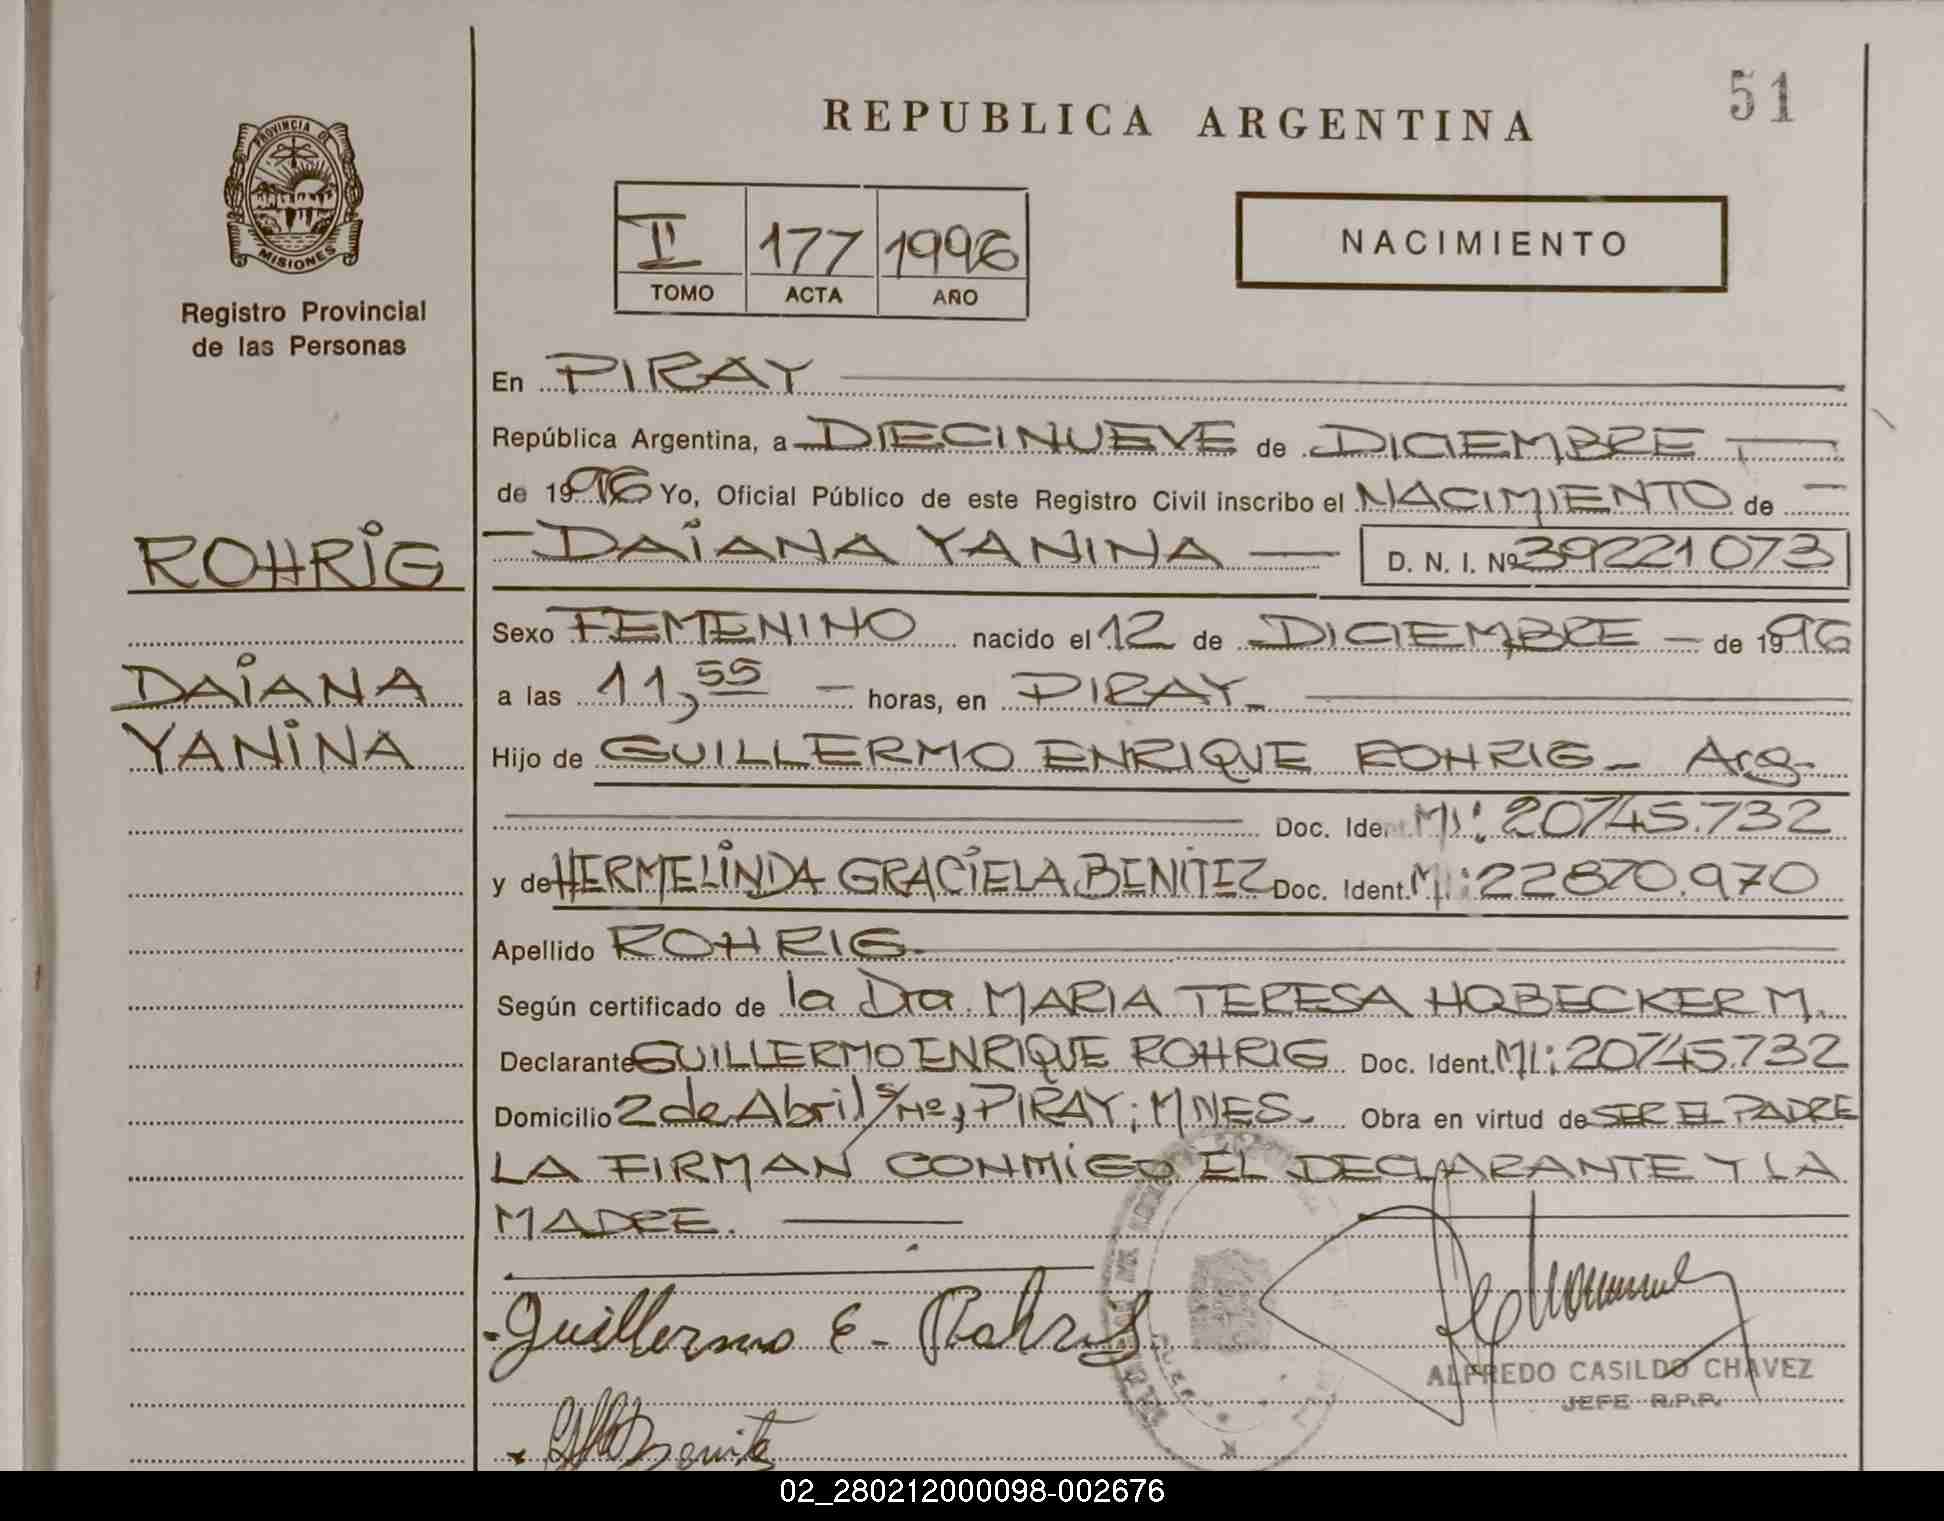 51
REPUBLICA ARGENTINA
PROVINCIA DE
MISIONES
Registro Provincial
de las Personas
II 177 1996
TOMO ACTA AÑO
NACIMIENTO
En PIRAY
República Argentina, a DIECINUEVE de DICIEMBRE
de 1996 Yo, Oficial Público de este Registro Civil inscribo el NACIMIENTO de
ROHRIG
DAIANA YANINA D. N. I. Nº 39221073
Sexo FEMENINO nacido el 12 de DICIEMBRE de 1996
DAIANA
a las 11,55 horas, en PIRAY
YANINA
Hijo de GUILLERMO ENRIQUE ROHRIG - Arg.
Doc. Ident. MI: 20745.732
y de HERMELINDA GRACIELA BENITEZ Doc. Ident. MI: 22870.970
Apellido ROHRIG
Según certificado de la Dra. MARIA TERESA HOBECKER M.
Declarante GUILLERMO ENRIQUE ROHRIG Doc. Ident. MI: 20745.732
Domicilio 2 de Abril s/Nº, PIRAY; MNES. Obra en virtud de SER EL PADRE
LA FIRMAN CONMIGO EL DECLARANTE Y LA
MADRE.
Guillermo E - Rohrig
ALFREDO CASILDO CHAVEZ
JEFE R.P.P.
Benitez
02_280212000098-002676